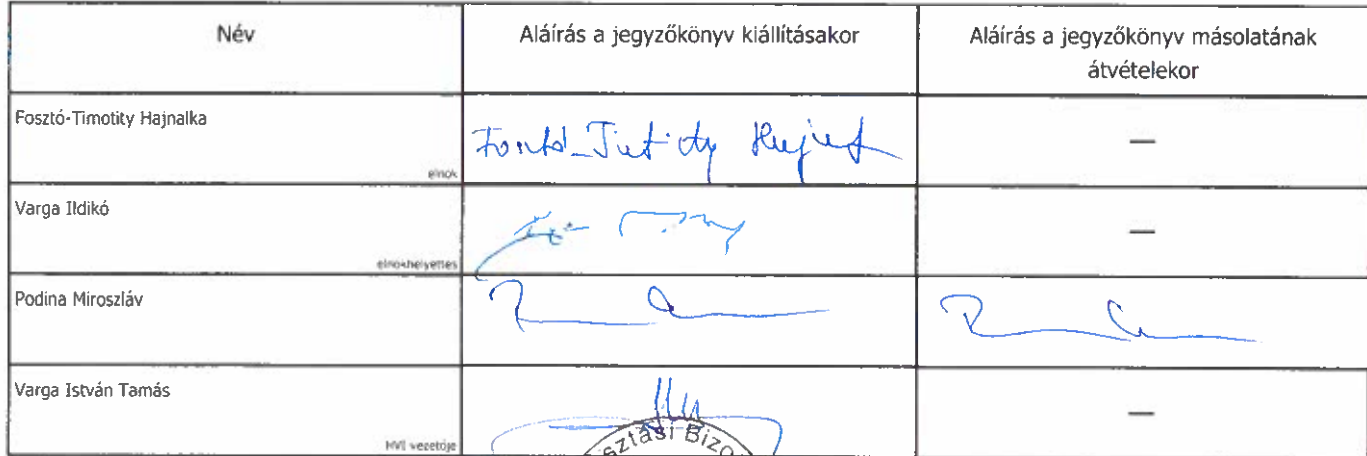 Név Aláírás a jegyzőkönyv kiállításakor Aláírás a jegyzőkönyv másolatának
átvételekor
Fosztó-Timotity Hajnalka
elnök
—
Varga Ildikó
elnökhelyettes
—
Podina Miroszláv
Varga István Tamás
HVI vezetője
—